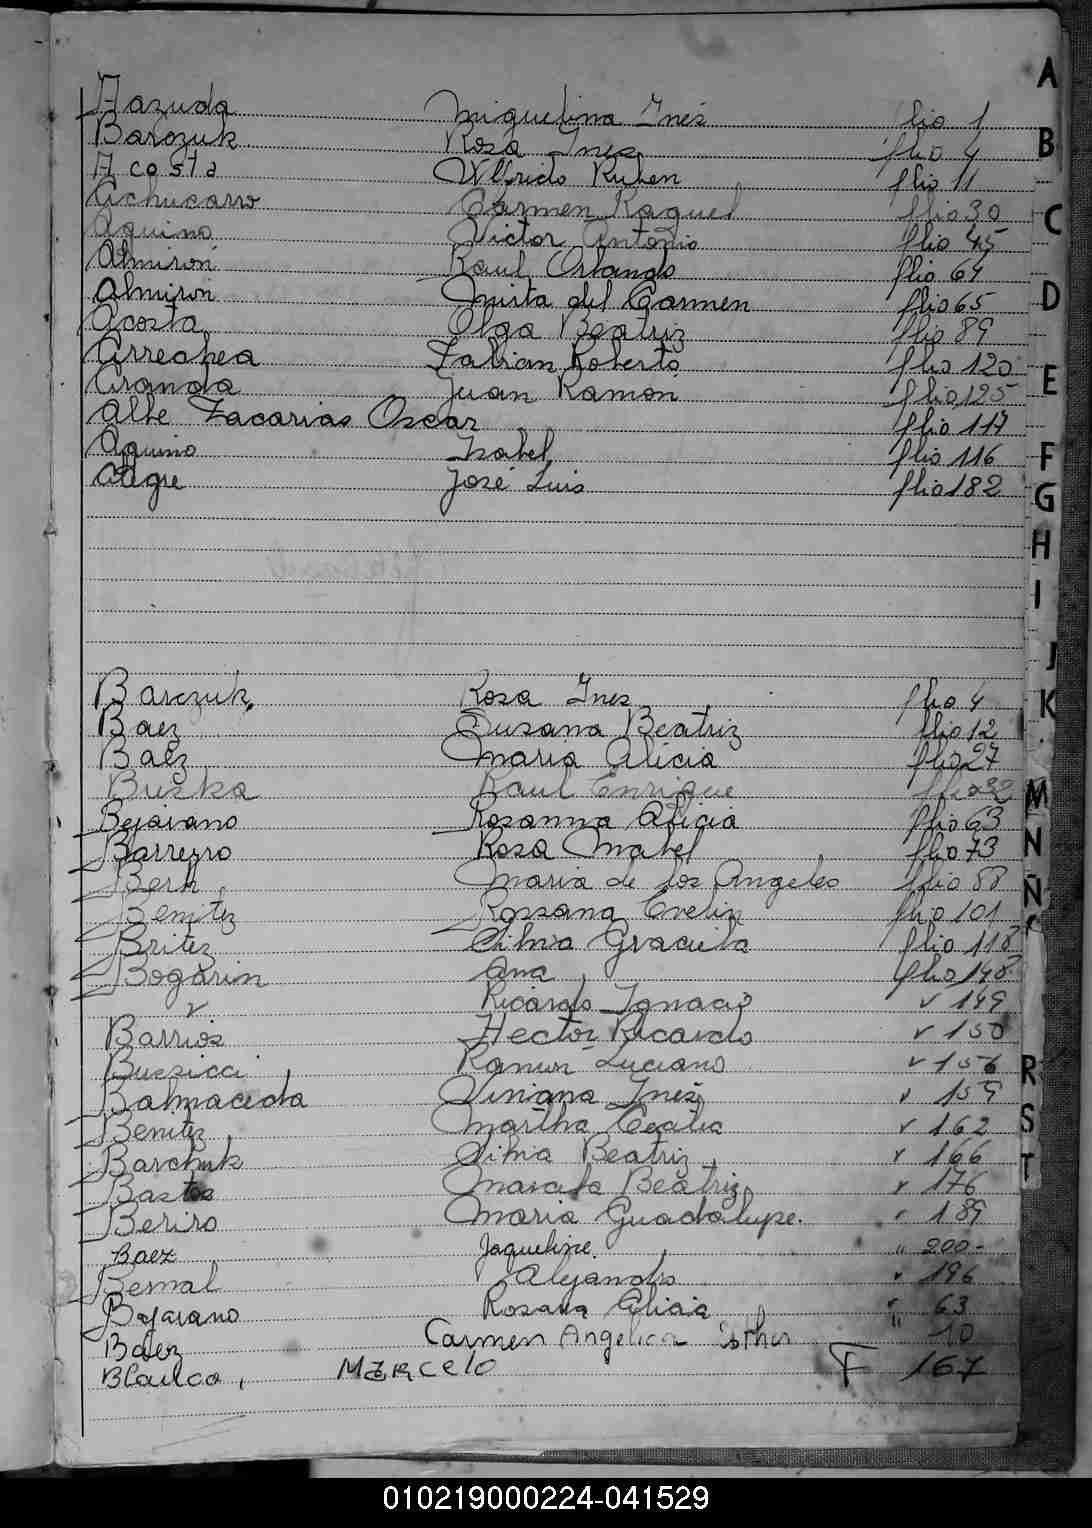 Aazuda Miguelina Ines flio 1
Barczuk Rosa Ines flio 4
Acosta Wlfrido Ruben flio 11
Achucarro Carmen Raquel flio 30
Aquino Victor Antonio flio 45
Almirón Raul Orlando flio 64
Almiron Mirta del Carmen flio 65
Acosta Olga Beatriz flio 89
Arreahea Fabian Roberto flio 120
Aranda Juan Ramon flio 125
Albe Zacarias Oscar flio 117
Aquino Isabel flio 116
Alegre José Luis flio 182
Barczuk, Rosa Ines flio 4
Baez Susana Beatriz flio 12
Baéz Maria Alicia flio 27
Raul Enrique flio 32
Bejarano Rosanna Alicia flio 63
Barreyro Rosa Mabel flio 73
Berk Maria de los Angeles flio 88
Benitez Rossana Evelin flio 101
Britez Silvia Graciela flio 118
Bogarin Ana flio 148
" Ricardo Ignacio " 149
Barrios Hector Ricardo " 150
Ramon Luciano " 156
Balmaceda Viviana Ines " 159
Benitez Martha Cecilia " 162
Barchuk Silvia Beatriz " 166
Bastos Marcela Beatriz " 176
Beriro Maria Guadalupe. " 189
Baez Jaqueline. " 200-
Bernal Alejandro " 196
Bejarano Rosana Alicia " 63
Baez Carmen Angelica Esther " 10
Blanco, Marcelo F 167
A
B
C
D
E
F
G
H
I
J
K
M
N
Ñ
R
S
T
010219000224-041529